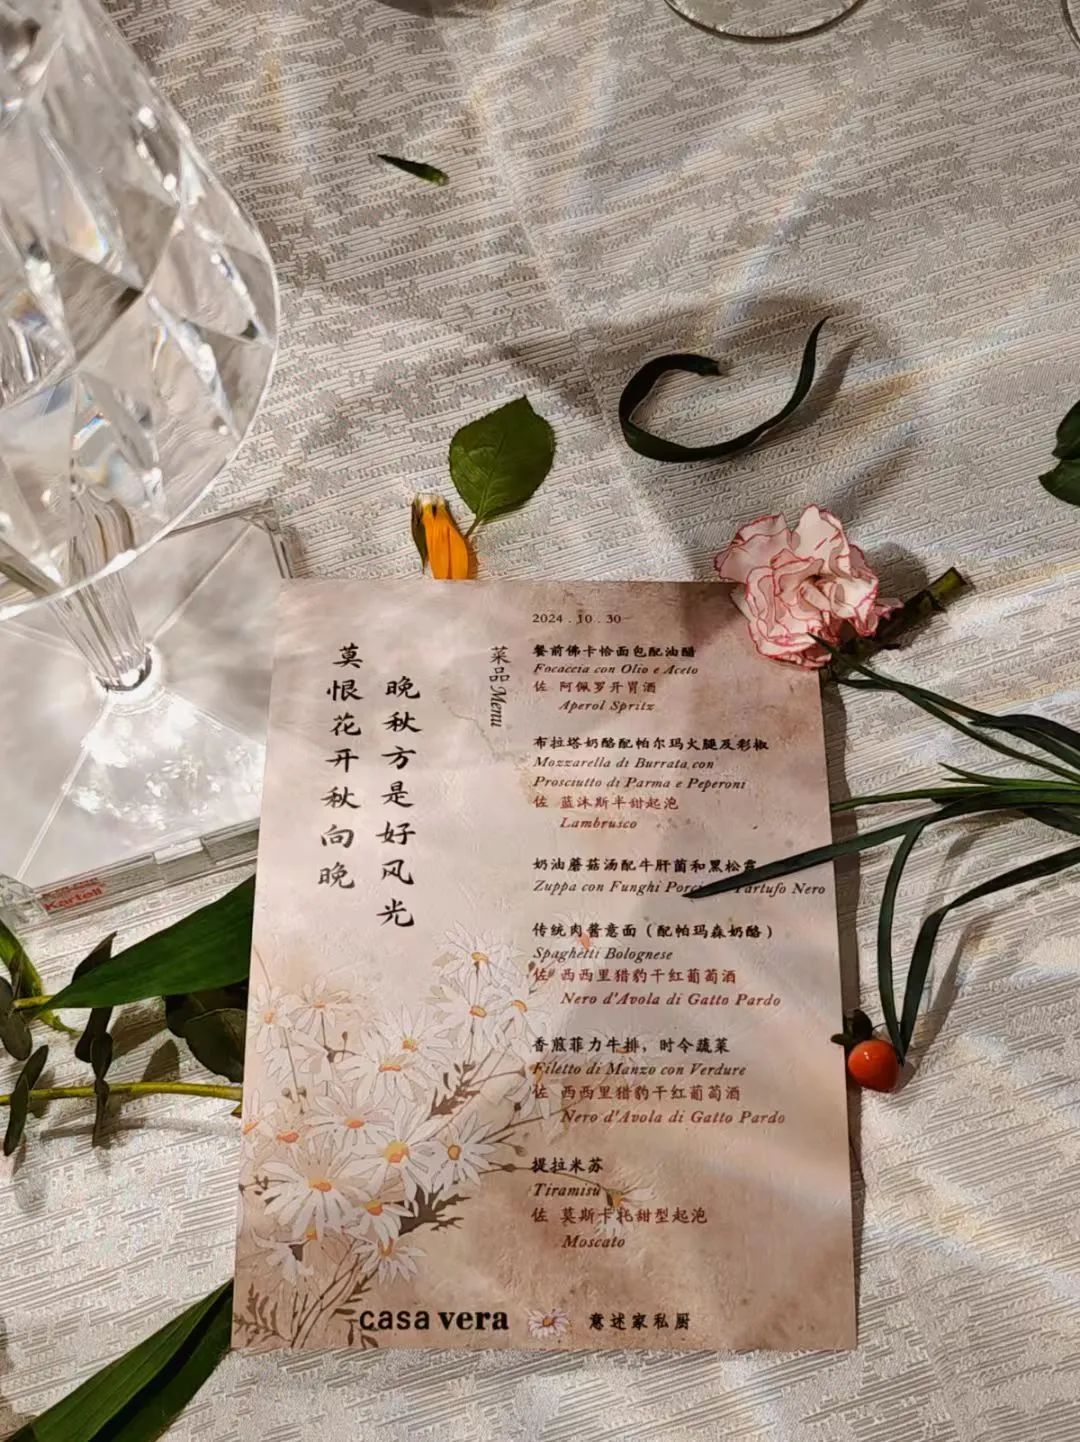 莫恨花开秋向晚
晚秋方是好风光
菜品Menu
2024.10.30
餐前佛卡恰面包配油醋
Focaccia con Olio e Aceto
佐 阿佩罗开胃酒
Aperol Spritz
布拉塔奶酪配帕尔玛火腿及彩椒
Mozzarella di Burrata con
Prosciutto di Parma e Peperoni
佐 蓝沐斯半甜起泡
Lambrusco
奶油蘑菇汤配牛肝菌和黑松露
Zuppa con Funghi Tartufo Nero
传统肉酱意面（配帕玛森奶酪）
Spaghetti Bolognese
佐 西西里猎豹干红葡萄酒
Nero d'Avola di Gatto Pardo
香煎菲力牛排，时令蔬菜
Filetto di Manzo con Verdure
佐 西西里猎豹干红葡萄酒
Nero d'Avola di Gatto Pardo
提拉米苏
Tiramisù
佐 莫斯卡托甜型起泡
Moscato
casa vera 意述家私厨
Kartell